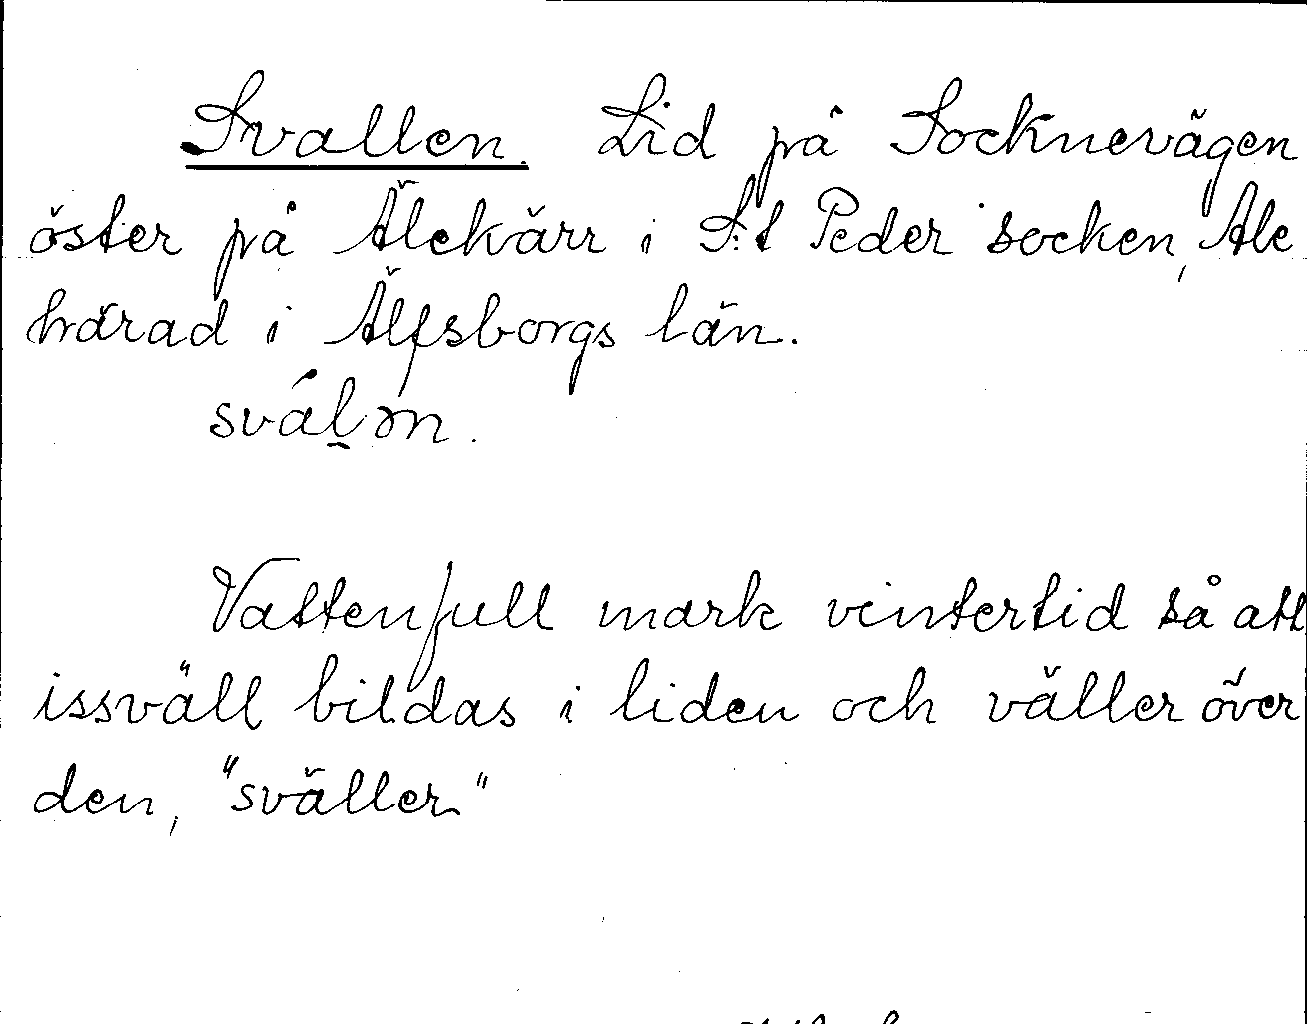 Svallen. Lid på Socknevägen
öster på Älekärr i S:t Peder socken, Ale
härad i Älfsborgs län.
sválən.
Vattenfull mark vintertid så att
issväll bildas i liden och väller över
den, "sväller"